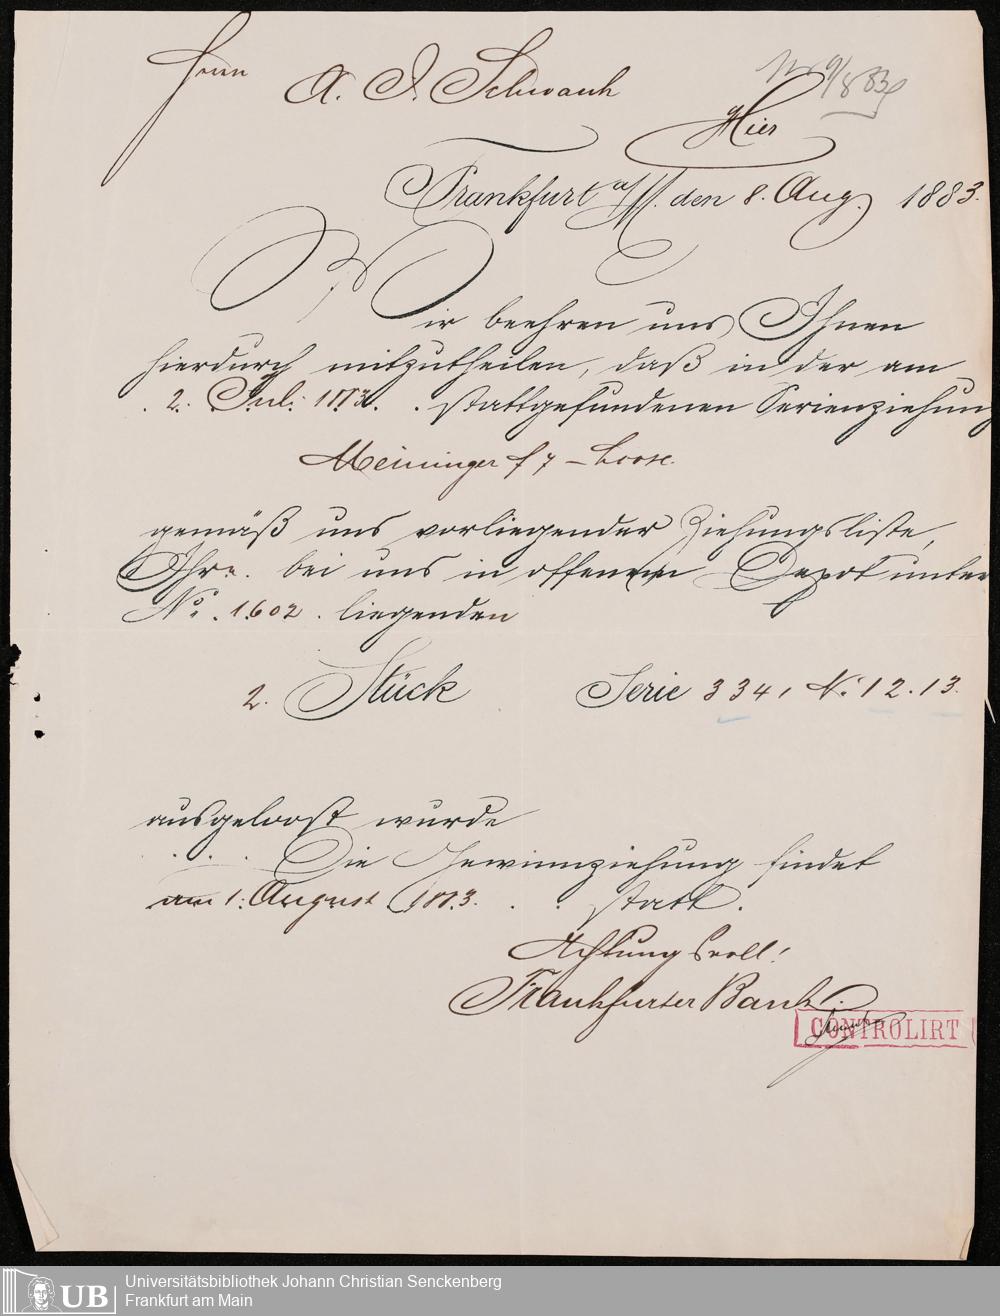 Herrn
A. J. Schwank
Hier
9/8 83
Frankfurt a/M. den 8. Aug. 1883.
Wir beehren uns Ihnen
hierdurch mitzutheilen, daß in der am
2. Jul. 1883. stattgefundenen Serienziehung
Meininger f 7 – Loose.
gemäß uns vorliegender Ziehungsliste,
Ihre bei uns in offenem Depot unter
No. 1602. liegenden
2. Stück Serie 334, No. 12. 13.
ausgeloost wurde
Die Gewinnziehung findet
am 1. August 1883. statt.
Achtungsvoll!
Frankfurter Bank.
CONTROLIRT
UB
Universitätsbibliothek Johann Christian Senckenberg
Frankfurt am Main